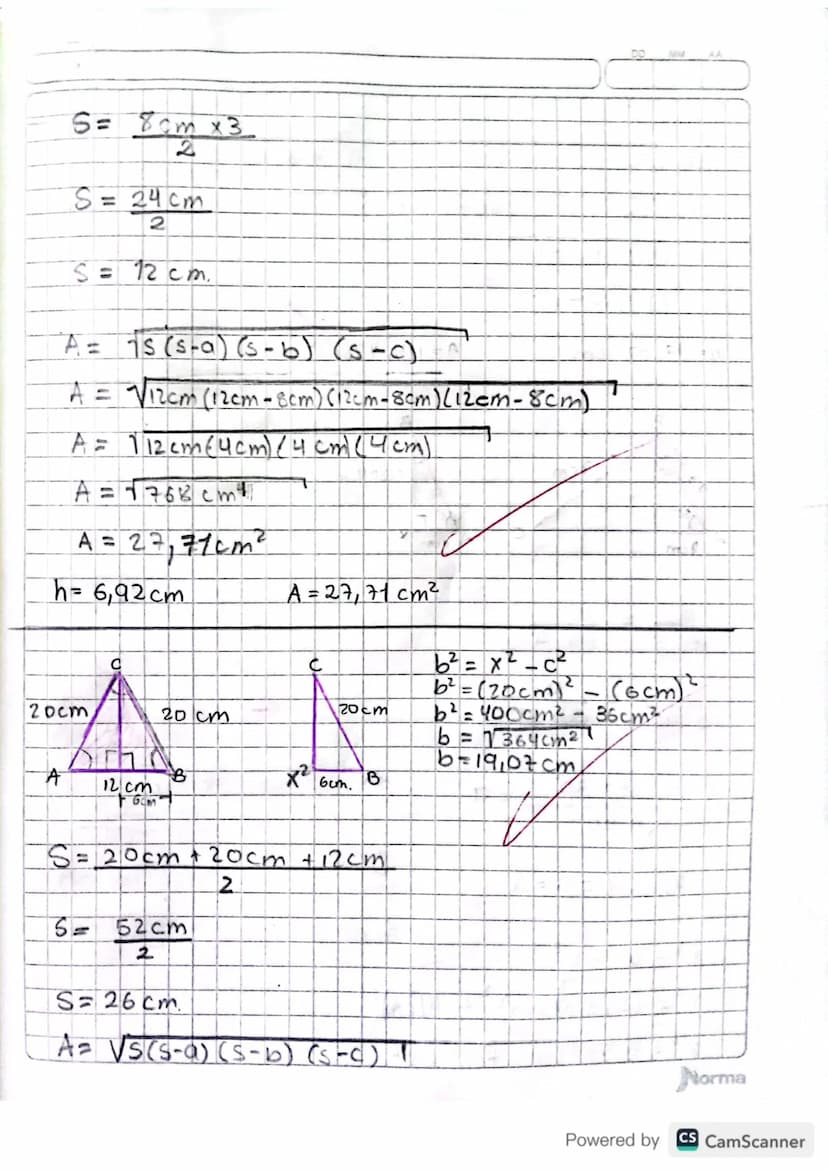 DD MM AA
S = 8cm x3
2
S = 24 cm
2
S = 12 cm.
A = √S(s-a) (s-b) (s-c)
A = √12cm (12cm-8cm)(12cm-8cm)(12cm-8cm)
A = √12cm(4cm)(4cm)(4cm)
A = √768 cm⁴
A = 27,71cm²
h= 6,92cm A = 27,71 cm²
C
20cm 20 cm
A B
12 cm
6cm
C
20cm
x² 6cm. B
b² = x² - c²
b² = (20cm)² - (6cm)²
b² = 400cm² - 36cm²
b = √364cm²
b = 19,07 cm
S = 20cm + 20cm + 12cm
2
S = 52cm
2
S = 26 cm.
A = √S(s-a) (s-b) (s-c)
Norma
Powered by CS CamScanner